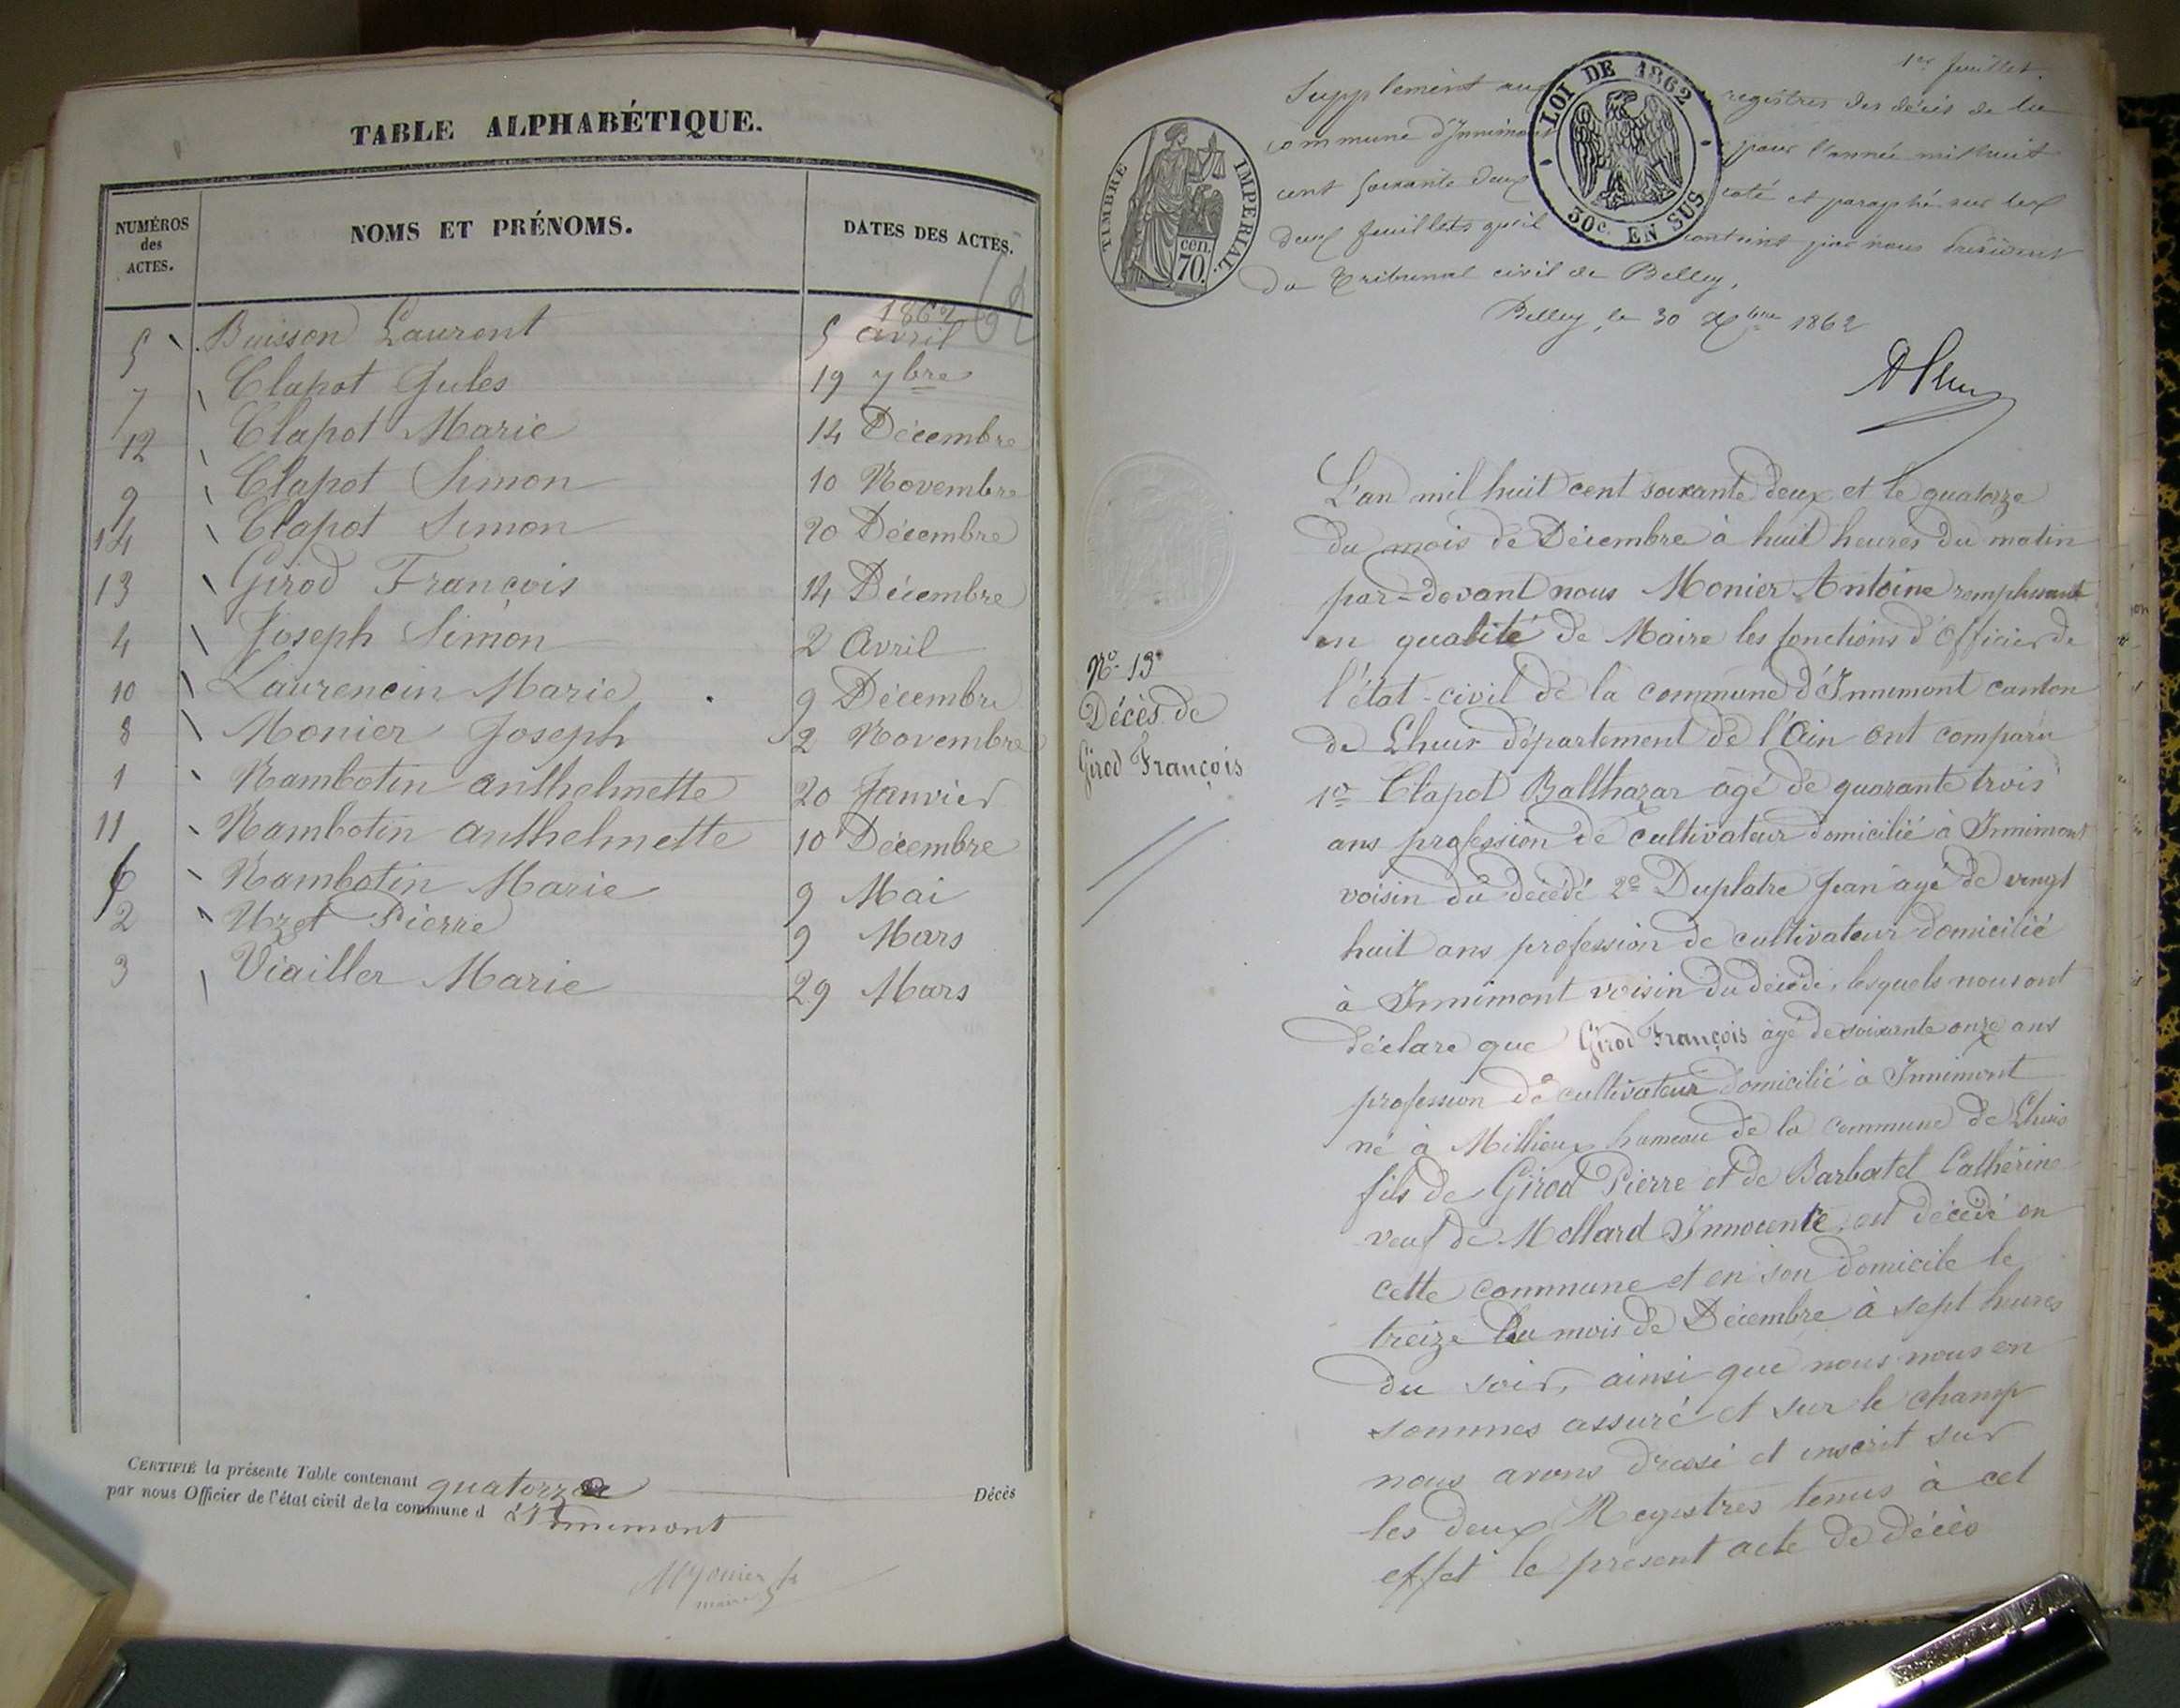 TABLE ALPHABÉTIQUE.
NUMÉROS des ACTES.
NOMS ET PRÉNOMS.
DATES DES ACTES.
1862
5 Buisson Laurent 5 avril
7 Clapot Jules 19 7bre
12 Clapot Marie 14 Décembre
9 Clapot Simon 10 Novembre
14 Clapot Simon 20 Décembre
13 Girod François 14 Décembre
4 Joseph Simon 2 Avril
10 Laurencin Marie 9 Décembre
8 Monier Joseph 2 Novembre
1 Rambotin anthelmette 20 Janvier
11 Rambotin anthelmette 10 Décembre
6 Rambotin Marie 9 Mai
2 Uzet Pierre 9 Mars
3 Viailler Marie 29 Mars
CERTIFIÉ la présente Table contenant quatorze Décès
par nous Officier de l'état civil de la commune d d'Innimont
Monier
maire
1er feuillet.
Supplément aux registres des décès de la
commune d'Innimont pour l'année mil huit
cent soixante deux coté et paraphé sur les
deux feuillets qu'il contient par nous Président
du Tribunal civil de Belley.
Belley, le 30 Xbre 1862
TIMBRE IMPERIAL.
cen.
70.
LOI DE 1862
30c. EN SUS
No. 13
Décès de
Girod François
L'an mil huit cent soixante deux et le quatorze
du mois de Décembre à huit heures du matin
par-devant nous Monier Antoine remplissant
en qualité de Maire les fonctions d'Officier de
l'état-civil de la commune d'Innimont canton
de Lhuis département de l'Ain ont comparu
1o Clapot Balthazar âgé de quarante trois
ans profession de cultivateur domicilié à Innimont
voisin du décédé 2o Duplatre Jean âgé de vingt
huit ans profession de cultivateur domicilié
à Innimont voisin du décédé, lesquels nous ont
déclaré que Girod François âgé de soixante onze ans
profession de cultivateur domicilié à Innimont
né à Millieux hameau de la commune de Lhuis
fils de Girod Pierre et de Barbatel Cathérine
veuf de Mollard Innocente, est décédé en
cette commune et en son domicile le
treize du mois de Décembre à sept heures
du soir, ainsi que nous nous en
sommes assuré et sur le champ
nous avons dressé et inscrit sur
les deux Registres tenus à cet
effet le présent acte de décès